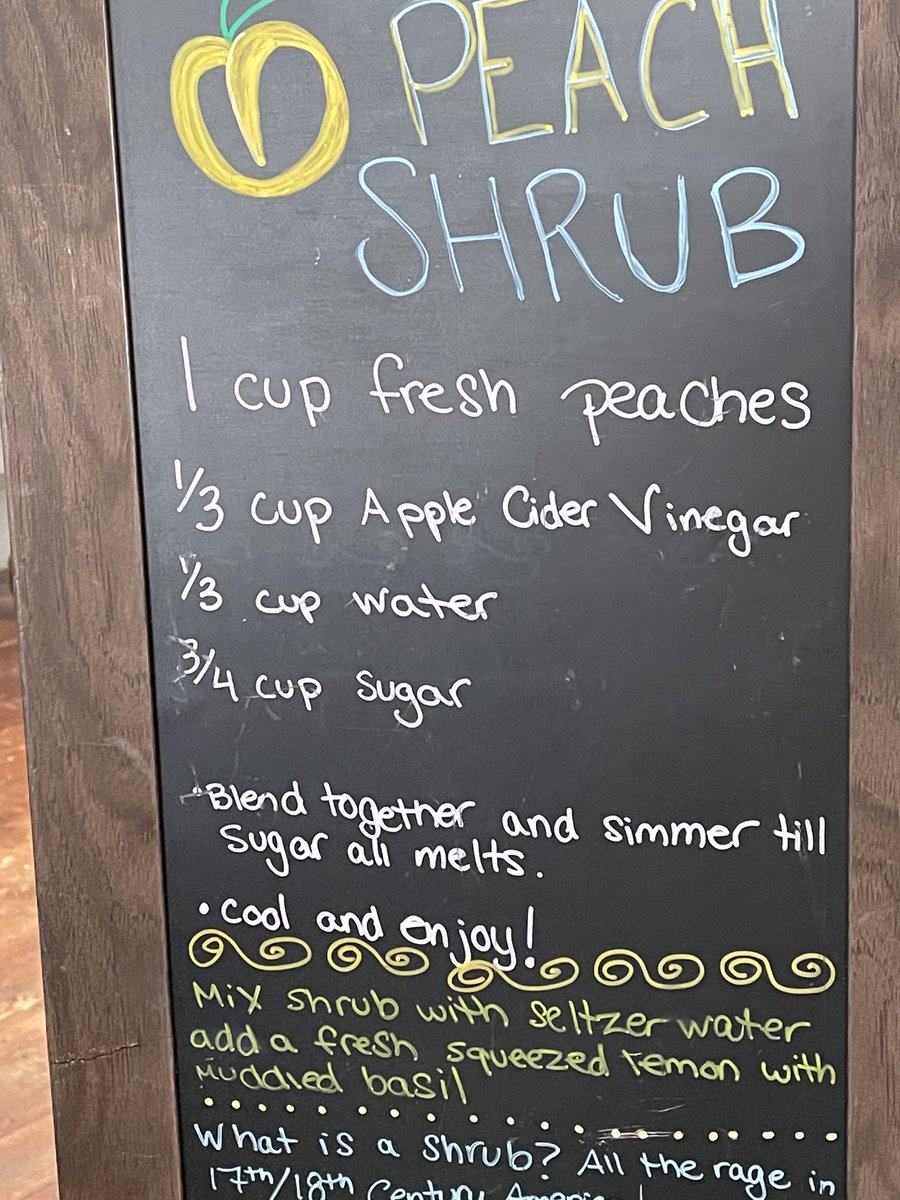 PEACH
SHRUB
1 cup fresh peaches
1/3 cup Apple Cider Vinegar
1/3 cup water
3/4 cup sugar
• Blend together and simmer till
sugar all melts.
• cool and enjoy!
Mix shrub with seltzer water
add a fresh squeezed lemon with
muddled basil
What is a Shrub? All the rage in
17th/18th Century